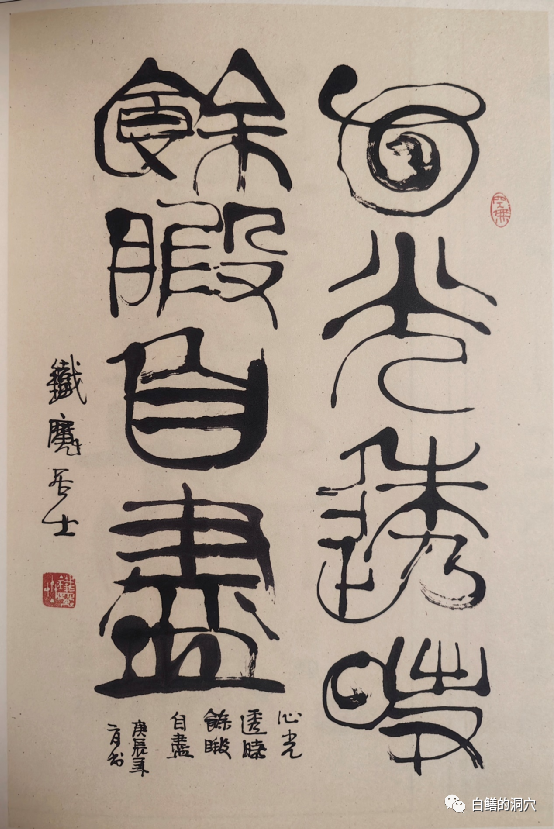 心光透時
餘暇自盡
心光
透時
餘暇
自盡
庚辰年
二月書
鐵居士
白鳝的洞穴